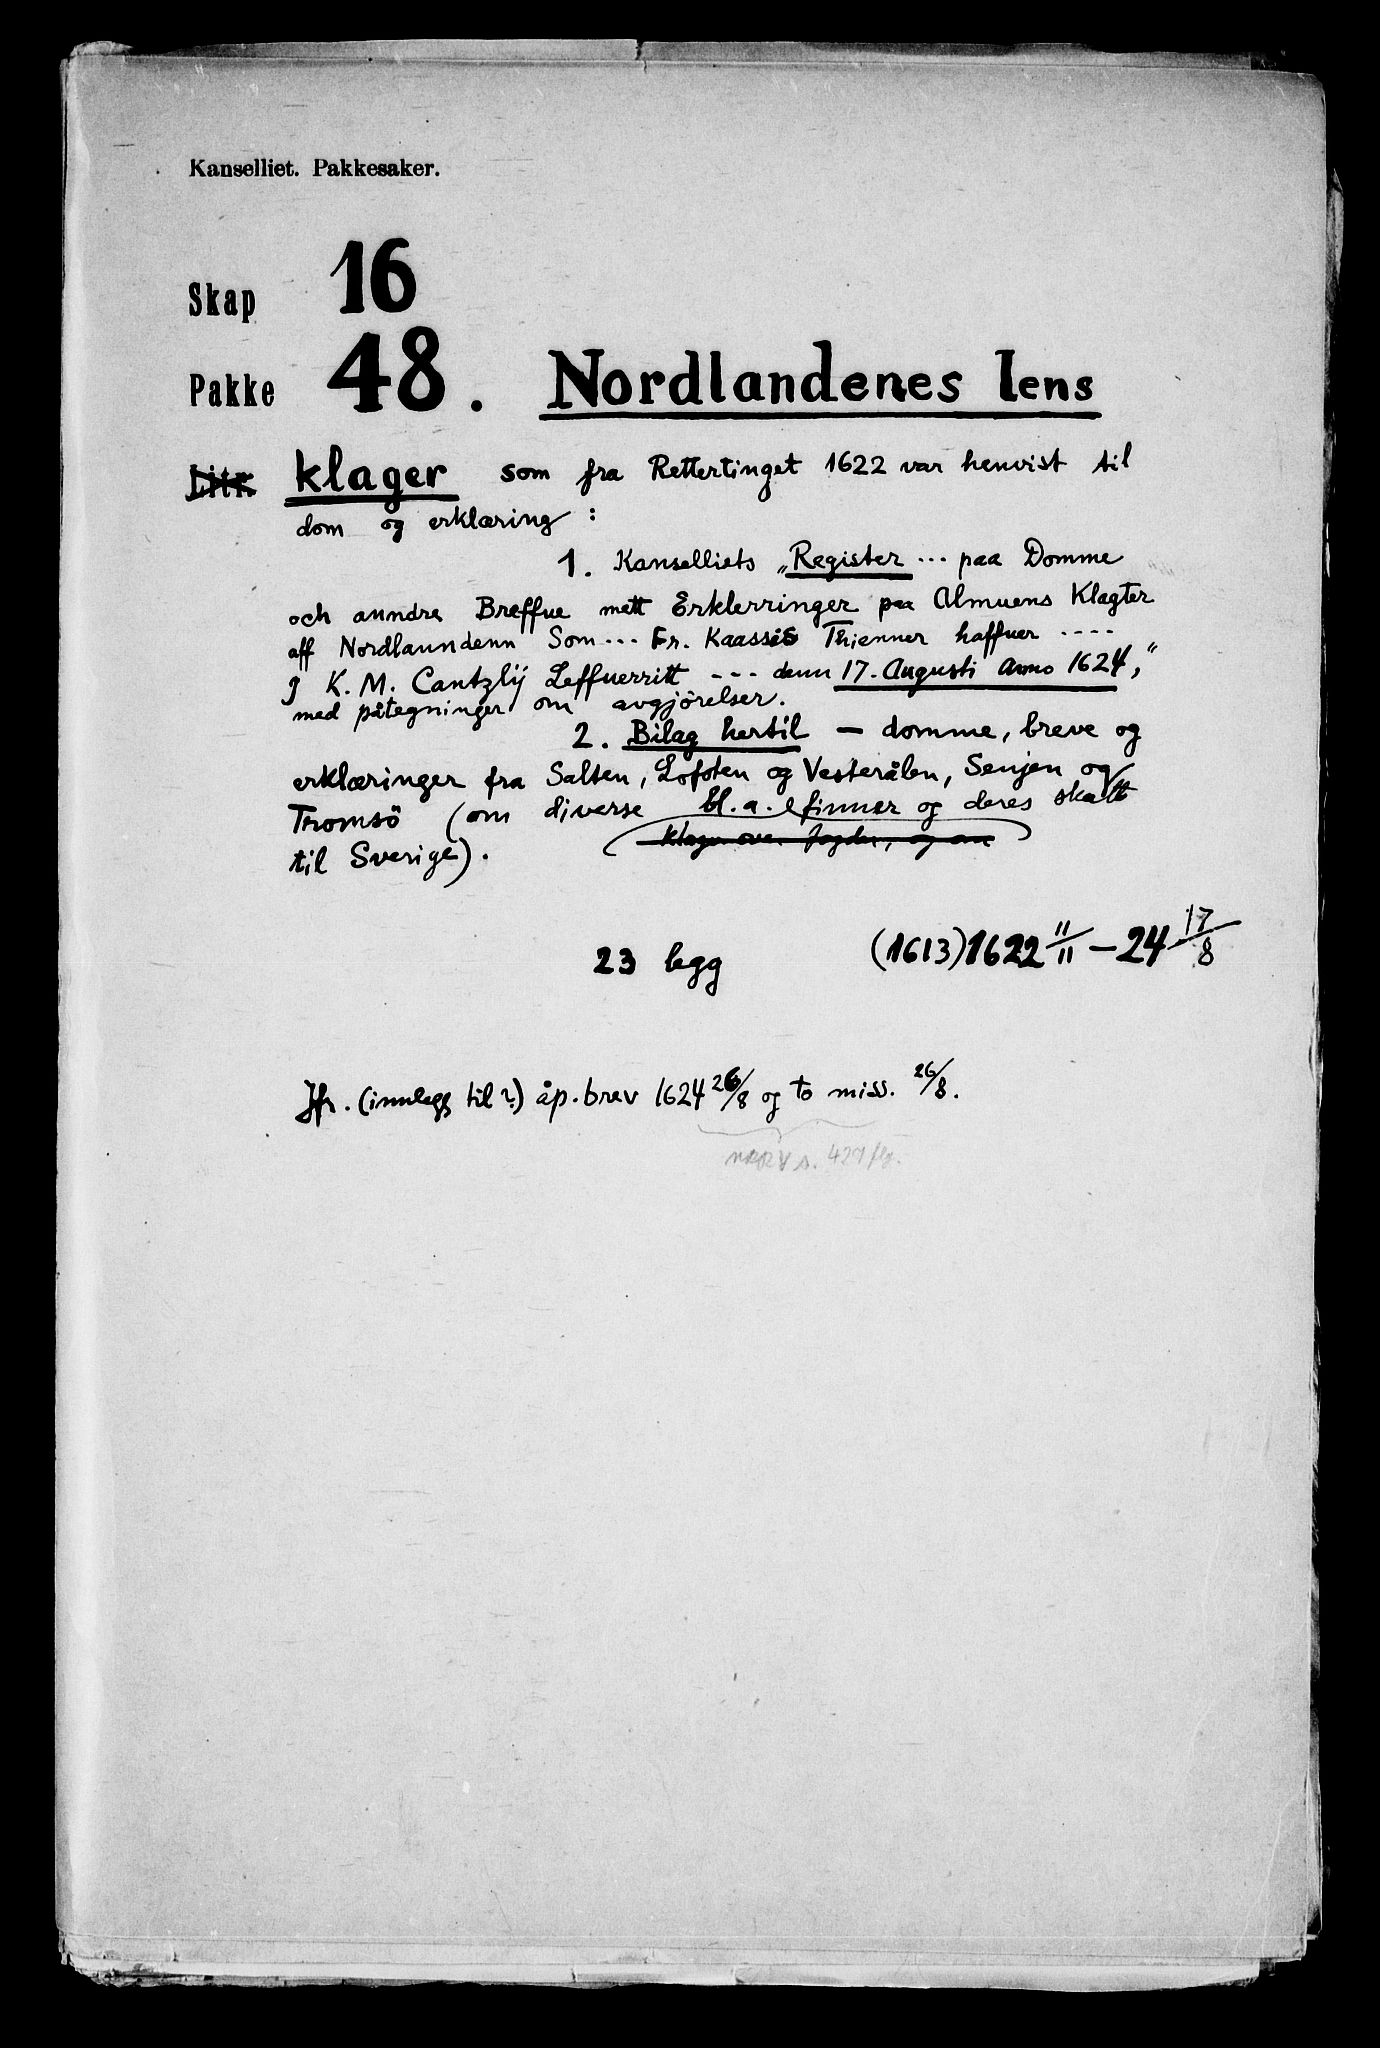 Kanselliet. Pakkesaker.
Skap 16
Pakke 48. Nordlandenes lens
Litr. klager som fra Rettertinget 1622 var henvist til
dom og erklæring :
1. Kanselliets „Register ... paa Domme
och anndre Breffue mett Erklerringer paa Almuens Klagter
aff Nordlaundenn Som ... Fr. Kaassis Thienner haffuer ....
J K. M. Cantzlij Leffuerritt --- denn 17. Augusti Anno 1624,"
med påtegninger om avgjörelser.
2. Bilag hertil — domme, breve og
erklæringer fra Salten, Lofoten og Vesterålen, Senjen og
Tromsö (om diverse bl. a. finner og deres skatt
klager over fogder, og om
til Sverige).
23 legg (1613) 1622 11/11 – 24 17/8
Jfr. (innlegg til ?) åp. brev 1624 26/8 og to miss. 26/8.
NRR V s. 427 flg.